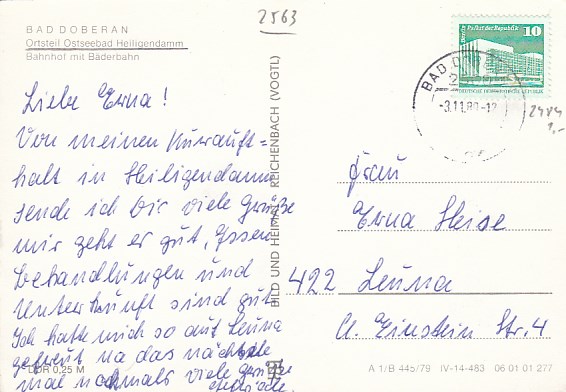 2563
BAD DOBERAN
Ortsteil Ostseebad Heiligendamm
Bahnhof mit Bäderbahn
Liebe Erna!
Von meinen Kuraufent=
halt in Heiligendamm
sende ich Dir viele Grüße
mir geht es gut, Essen
Behandlungen und
Unterkunft sind gut
Ich hatte mich so auf Leuna
gefreut na das nächste
mal nochmals viele Grüße
EVP 0,25 M
BILD UND HEIMAT REICHENBACH (VOGTL)
10
Palast der Republik
BAD DOBERAN
-3.11.80-12
2484
1,-
Frau
Erna Heise
422 Leuna
A. Einstein Str. 4
A 1/B 445/79 IV-14-483 06 01 01 277